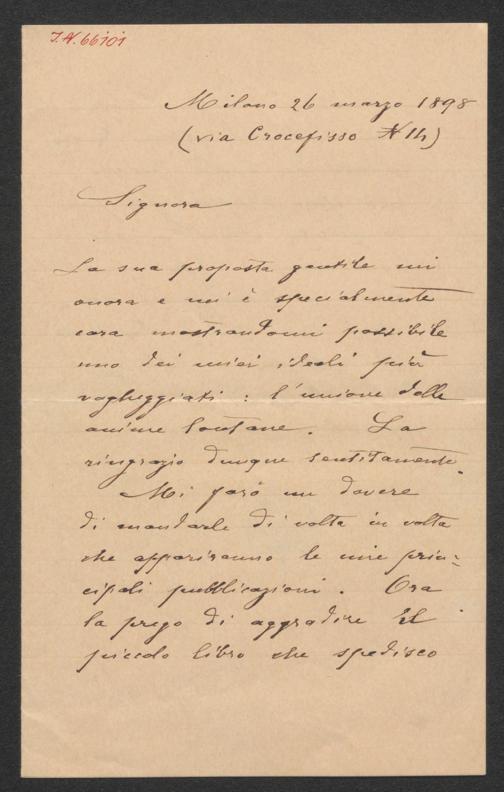 I.N. 66101
Milano 26 marzo 1898
(via Crocefisso N 14)
Signora
La sua proposta gentile mi
onora e mi è specialmente
cara mostrandomi possibile
uno dei miei ideali più
vagheggiati : l'unione delle
anime lontane. La
ringrazio dunque sentitamente.
Mi farò un dovere
di mandarle di volta in volta
che appariranno le mie prin-
cipali pubblicazioni. Ora
la prego di aggradire il
piccolo libro che spedisco